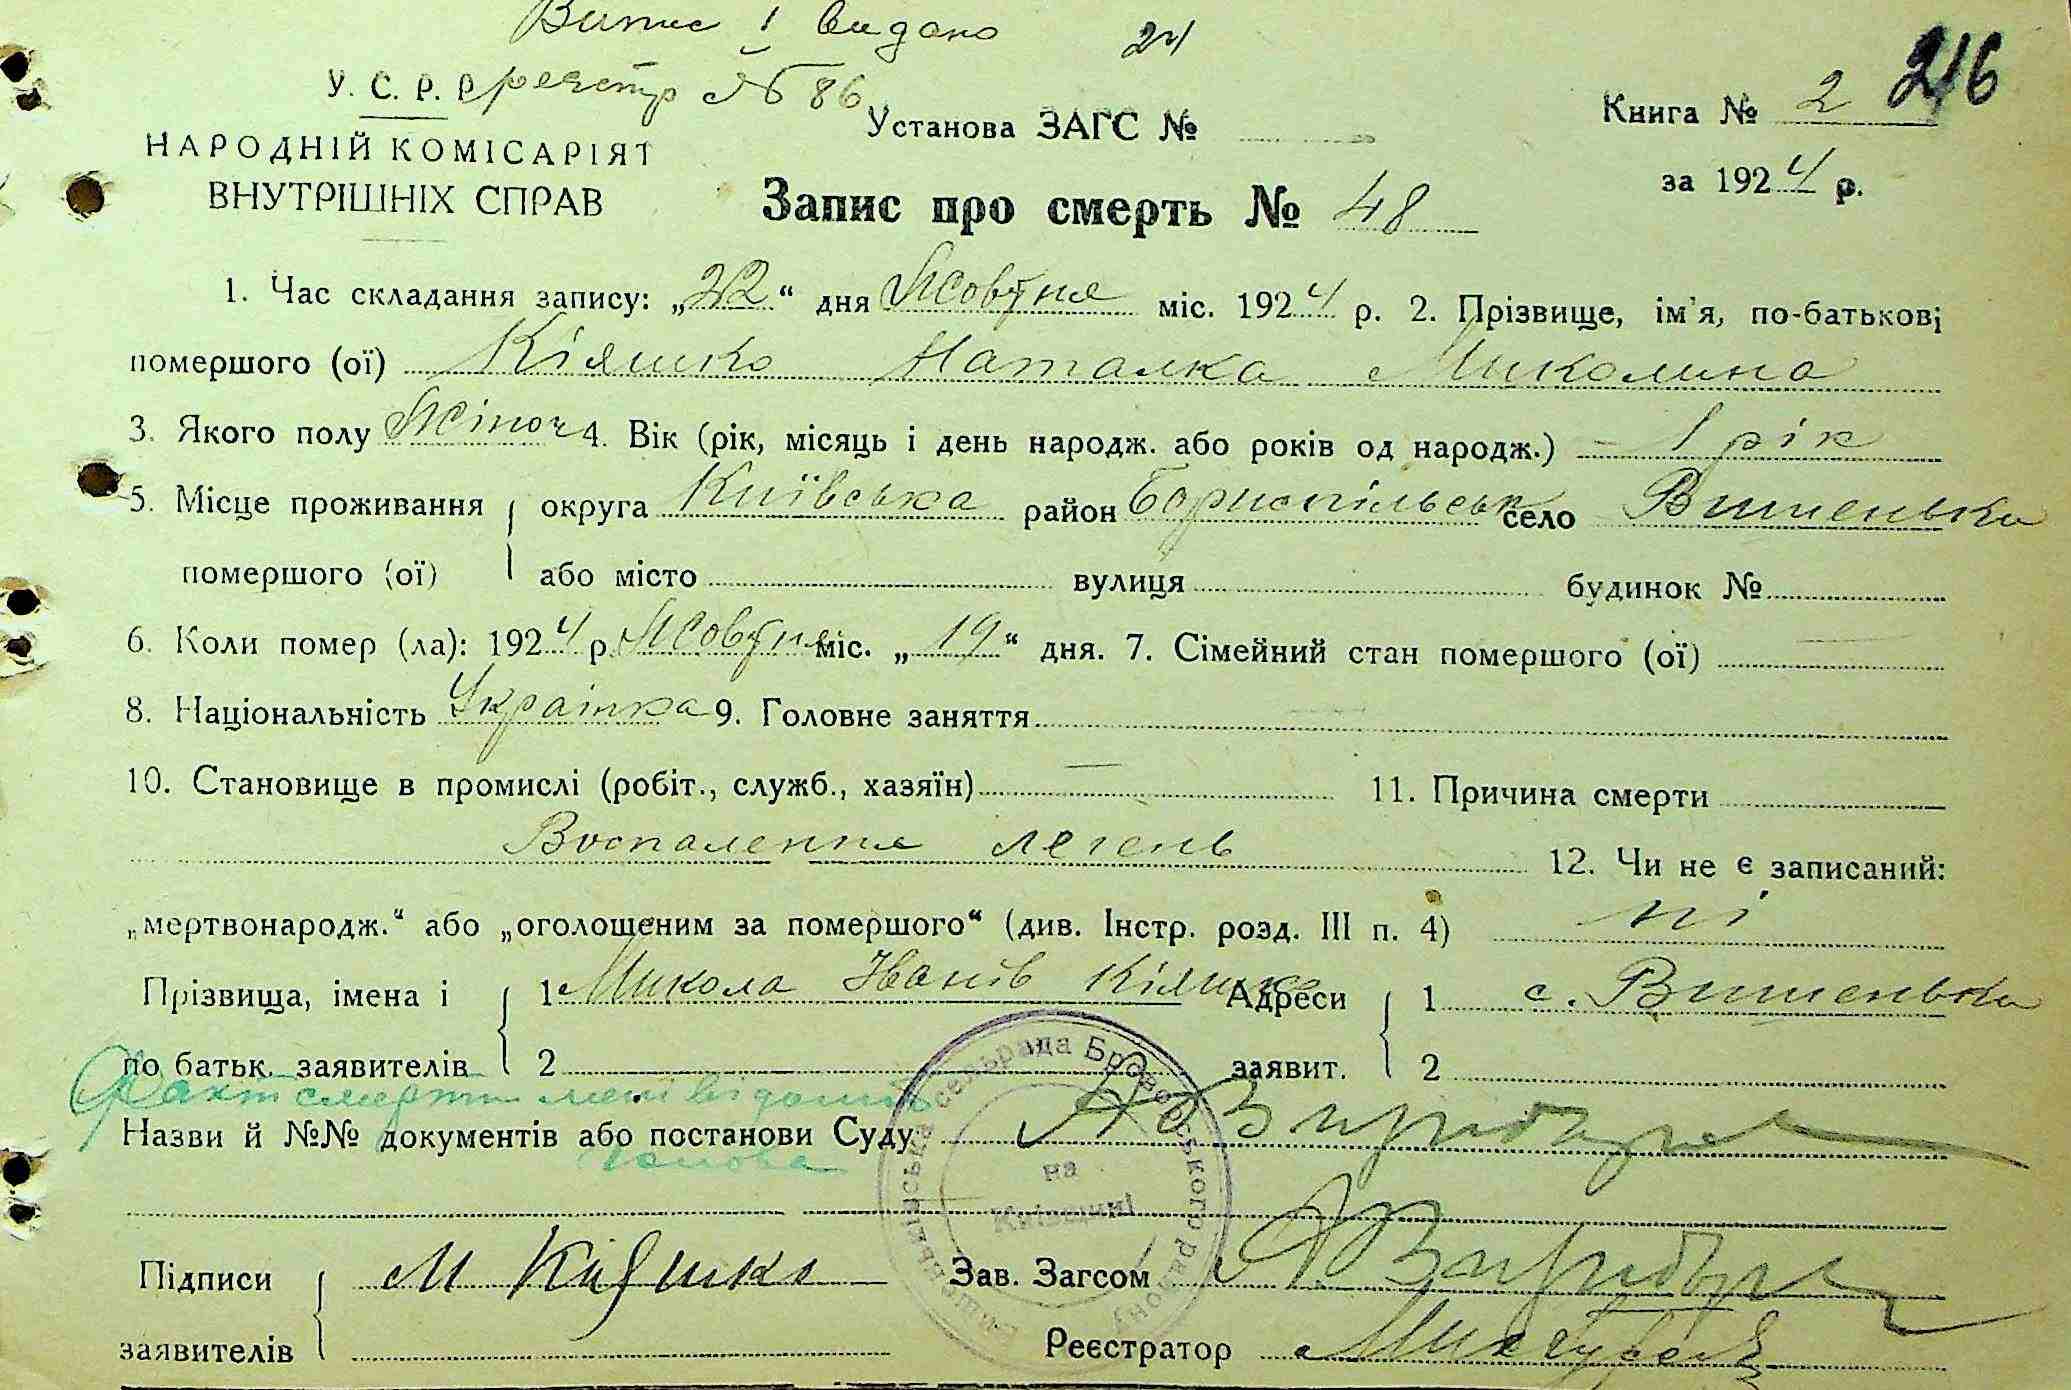 Випис і видано 24
У. С. Р. Р. реєстр № 86
Установа ЗАГС №
Книга № 2 216
НАРОДНІЙ КОМІСАРІЯТ
ВНУТРІШНІХ СПРАВ
за 1924 р.
Запис про смерть № 48
1. Час складання запису: „22“ дня Жовтня міс. 1924 р. 2. Прізвище, ім'я, по-батькові
помершого (ої) Кіяшко Наталка Миколина
3. Якого полу Жіноч 4. Вік (рік, місяць і день народж. або років од народж.) 1 рік
5. Місце проживання округа Київська район Бориспільськ село Вишеньки
помершого (ої) або місто вулиця будинок №
6. Коли помер (ла): 1924 р. Жовтня міс. „19“ дня. 7. Сімейний стан помершого (ої) —
8. Національність Украінка 9. Головне заняття —
10. Становище в промислі (робіт., служб., хазяїн) — 11. Причина смерти
Воспалення легень
12. Чи не є записаний:
„мертвонародж.“ або „оголошеним за помершого“ (див. Інстр. розд. III п. 4) ні
Прізвища, імена і 1 Микола Іванів Кіяшко Адреси 1 с. Вишеньки
по батьк. заявителів 2 заявит. 2
Факт смерти мені відомий
Назви й №№ документів або постанови Суду
Голова
сельрада Броворського району
на
Київщині
Підписи М Кіяшко Зав. Загсом
заявителів Реєстратор